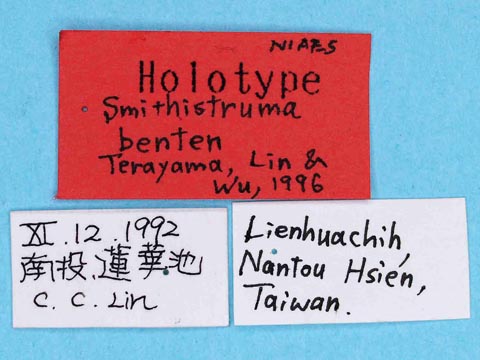 NIAES
Holotype
Smithistruma
benten
Terayama, Lin &
Wu, 1996
XI.12.1992
南投.蓮華池
C. C. Lin
Lienhuachih,
Nantou Hsien,
Taiwan.